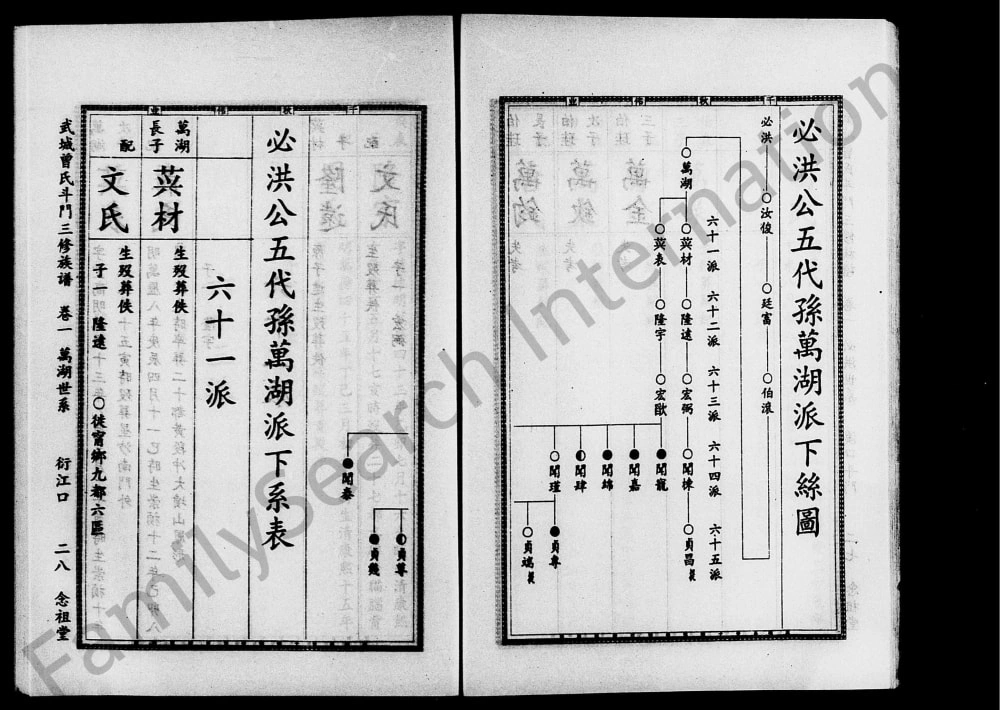 千秋偉業
必洪公五代孫萬湖派下絲圖
必洪
○汝俊
○廷富
○伯滾
六十一派
六十二派
六十三派
六十四派
六十五派
○萬湖
○荬材
○隆遠
○宏弼
○聞棟
○貞昌
○荬表
○隆宇
○宏猷
●聞寵
●聞嘉
●聞錦
◐聞肆
○聞瑾
●貞專
○貞瑞
千秋偉業
●聞泰
◐貞尊
●貞幾
必洪公五代孫萬湖派下系表
六十一派
萬湖
長子
荬材
生歿葬佚
次配
文氏
生歿葬佚
子一
隆遠
○徙甯鄉九都六區
武城曾氏斗門三修族譜 卷一 萬湖世系 衍江口 二八 念祖堂
FamilySearch International